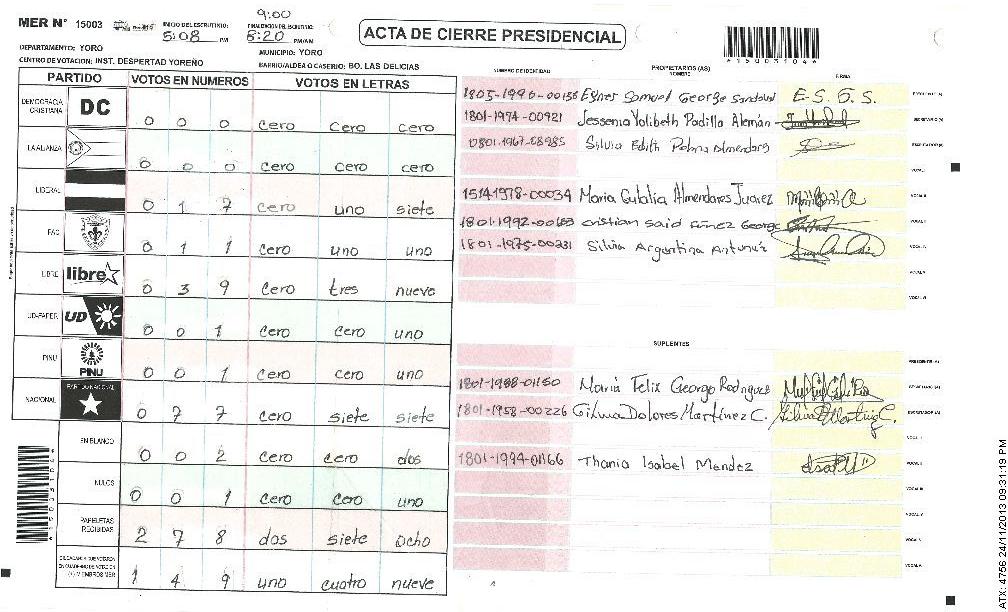 MER N° 15003
INICIO DEL ESCRUTINIO: 5:08 PM
9:00
FINALIZACION DEL ESCRUTINIO: 8:20 PM/AM
ACTA DE CIERRE PRESIDENCIAL
*15003104*
DEPARTAMENTO: YORO
MUNICIPIO: YORO
CENTRO DE VOTACION: INST. DESPERTAD YOREÑO
BARRIO/ALDEA O CASERIO: BO. LAS DELICIAS
PARTIDO VOTOS EN NUMEROS VOTOS EN LETRAS
DEMOCRACIA CRISTIANA DC 0 0 0 cero cero cero
LA ALIANZA 0 0 0 cero cero cero
LIBERAL 0 1 7 cero uno siete
PAC 0 1 1 cero uno uno
LIBRE libre 0 3 9 cero tres nueve
UD-FAPER UD 0 0 1 cero cero uno
PINU PINU 0 0 1 cero cero uno
NACIONAL PARTIDO NACIONAL 0 7 7 cero siete siete
EN BLANCO 0 0 2 cero cero dos
NULOS 0 0 1 cero cero uno
PAPELETAS RECIBIDAS 2 7 8 dos siete ocho
CIUDADANOS QUE VOTARON EN CUADERNO DE VOTACION (+) MIEMBROS MER 1 4 9 uno cuatro nueve
NUMERO DE IDENTIDAD PROPIETARIOS (AS) NOMBRE FIRMA
Samuel George E.S.G.S. PRESIDENTE (A)
1801-1974-00921 Jessenia Yolibeth Padilla Alemán SECRETARIO (A)
0801-1967-08985 Silvia Edith ESCRUTADOR (A)
VOCAL I
15141978-00034 Maria Eulalia Almendares Juarez VOCAL II
cristian said George
1801-1975-00231 Silvia Argentina
SUPLENTES
PRESIDENTE (A)
1801-1988-01150 Maria Felix George Rodriguez SECRETARIO (A)
1801-1958-00226 Gilma Dolores Martínez C. ESCRUTADOR (A)
VOCAL I
1801-1994-01166 Thania Isabel Mendez VOCAL II
VOCAL III
VOCAL IV
VOCAL V
*15003104*
ATX: 4756 24/11/2013 09:31:19 PM